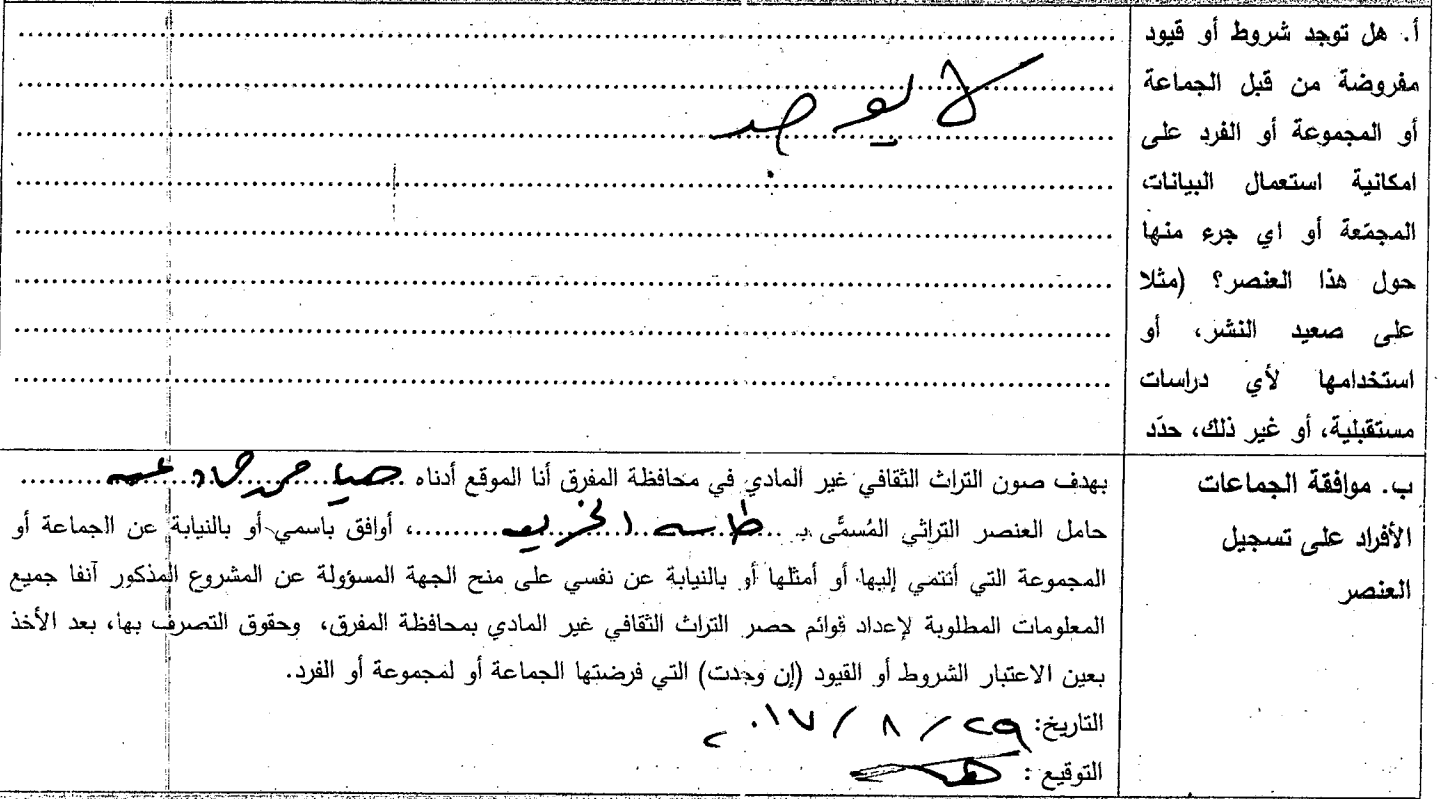 أ. هل توجد شروط أو قيود
مفروضة من قبل الجماعة
أو المجموعة أو الفرد على
امكانية استعمال البيانات
المجمّعة أو اي جرء منها
حول هذا العنصر؟ (مثلا
على صعيد النشر، أو
استخدامها لأي دراسات
مستقبلية، أو غير ذلك، حدّد
لا يوجد
ب. موافقة الجماعات
الأفراد على تسجيل
العنصر
بهدف صون التراث الثقافي غير المادي في محافظة المفرق أنا الموقع أدناه
حامل العنصر التراثي المُسمَّى بـ طاسة ا، أوافق باسمي أو بالنيابة عن الجماعة أو
المجموعة التي أنتمي إليها أو أمثلها أو بالنيابة عن نفسي على منح الجهة المسؤولة عن المشروع المذكور آنفا جميع
المعلومات المطلوبة لإعداد قوائم حصر التراث الثقافي غير المادي بمحافظة المفرق، وحقوق التصرف بها، بعد الأخذ
بعين الاعتبار الشروط أو القيود (إن وجدت) التي فرضتها الجماعة أو لمجموعة أو الفرد.
التاريخ: ٢٩ / ٨ / ٢٠١٧
التوقيع :